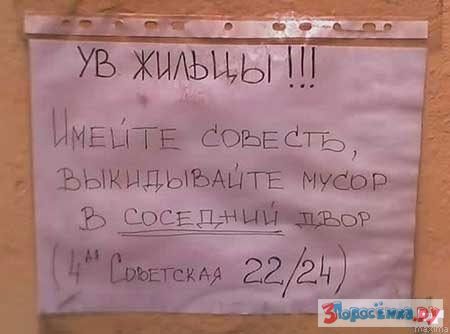 УВ ЖИЛЬЦЫ!!!
ИМЕЙТЕ СОВЕСТЬ,
ВЫКИДЫВАЙТЕ МУСОР
В СОСЕДНИЙ ДВОР
(4ая СОВЕТСКАЯ 22/24)
3Поросёнка.ру
maxima